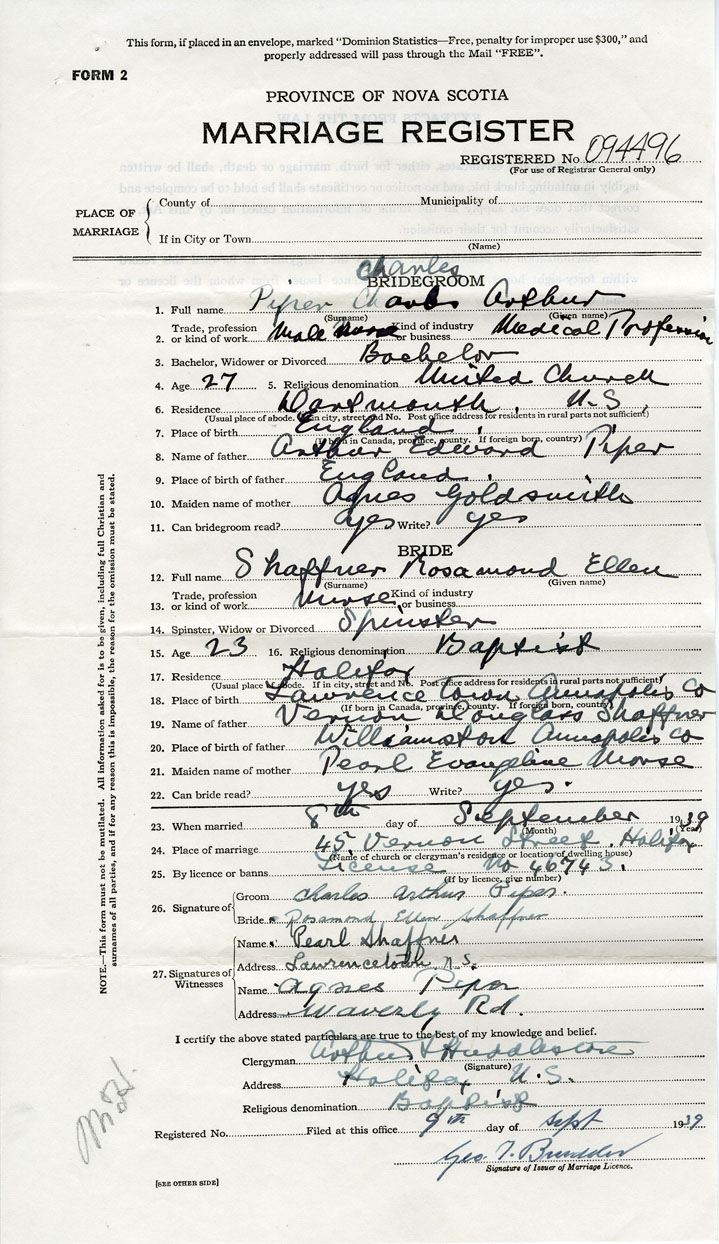 This form, if placed in an envelope, marked "Dominion Statistics—Free, penalty for improper use $300," and
properly addressed will pass through the Mail "FREE".
FORM 2
PROVINCE OF NOVA SCOTIA
MARRIAGE REGISTER
REGISTERED No. 094496
(For use of Registrar General only)
PLACE OF MARRIAGE
County of Municipality of
If in City or Town
(Name)
Charles
BRIDEGROOM
1. Full name Piper Charles Arthur
(Surname) (Given name)
2. Trade, profession or kind of work Male Nurse Kind of industry or business Medical Profession
3. Bachelor, Widower or Divorced Bachelor
4. Age 27 5. Religious denomination United Church
6. Residence Dartmouth, N.S.
(Usual place of abode. If in city, street and No. Post office address for residents in rural parts not sufficient)
7. Place of birth England
(If born in Canada, province, county. If foreign born, country)
8. Name of father Arthur Edward Piper
9. Place of birth of father England
10. Maiden name of mother Agnes Goldsmith
11. Can bridegroom read? yes Write? yes
BRIDE
12. Full name Shaffner Rosamond Ellen
(Surname) (Given name)
13. Trade, profession or kind of work Nurse Kind of industry or business
14. Spinster, Widow or Divorced Spinster
15. Age 23 16. Religious denomination Baptist
17. Residence Halifax
(Usual place of abode. If in city, street and No. Post office address for residents in rural parts not sufficient)
18. Place of birth Lawrence Town Annapolis Co
(If born in Canada, province, county. If foreign born, country)
19. Name of father Vernon Douglass Shaffner
20. Place of birth of father Williamston Annapolis Co
21. Maiden name of mother Pearl Evangeline Morse
22. Can bride read? yes Write? yes.
23. When married 8th day of September 1939
(Month) (Year)
24. Place of marriage 45 Vernon Street, Halifax
(Name of church or clergyman's residence or location of dwelling house)
25. By licence or banns License No 4674 S.
(If by licence, give number)
26. Signature of
Groom Charles Arthur Piper.
Bride Rosamond Ellen Shaffner
27. Signatures of Witnesses
Name Pearl Shaffner
Address Lawrencetown, N.S.
Name Agnes Piper
Address Waverly Rd.
I certify the above stated particulars are true to the best of my knowledge and belief.
Clergyman Arthur Huddlestone
(Signature)
Address Halifax N.S.
Religious denomination Baptist
Registered No. Filed at this office 9th day of Sept 1939
Geo.
Signature of Issuer of Marriage Licence.
[SEE OTHER SIDE]
NOTE.—This form must not be mutilated. All information asked for is to be given, including full Christian and
surnames of all parties, and if for any reason this is impossible, the reason for the omission must be stated.